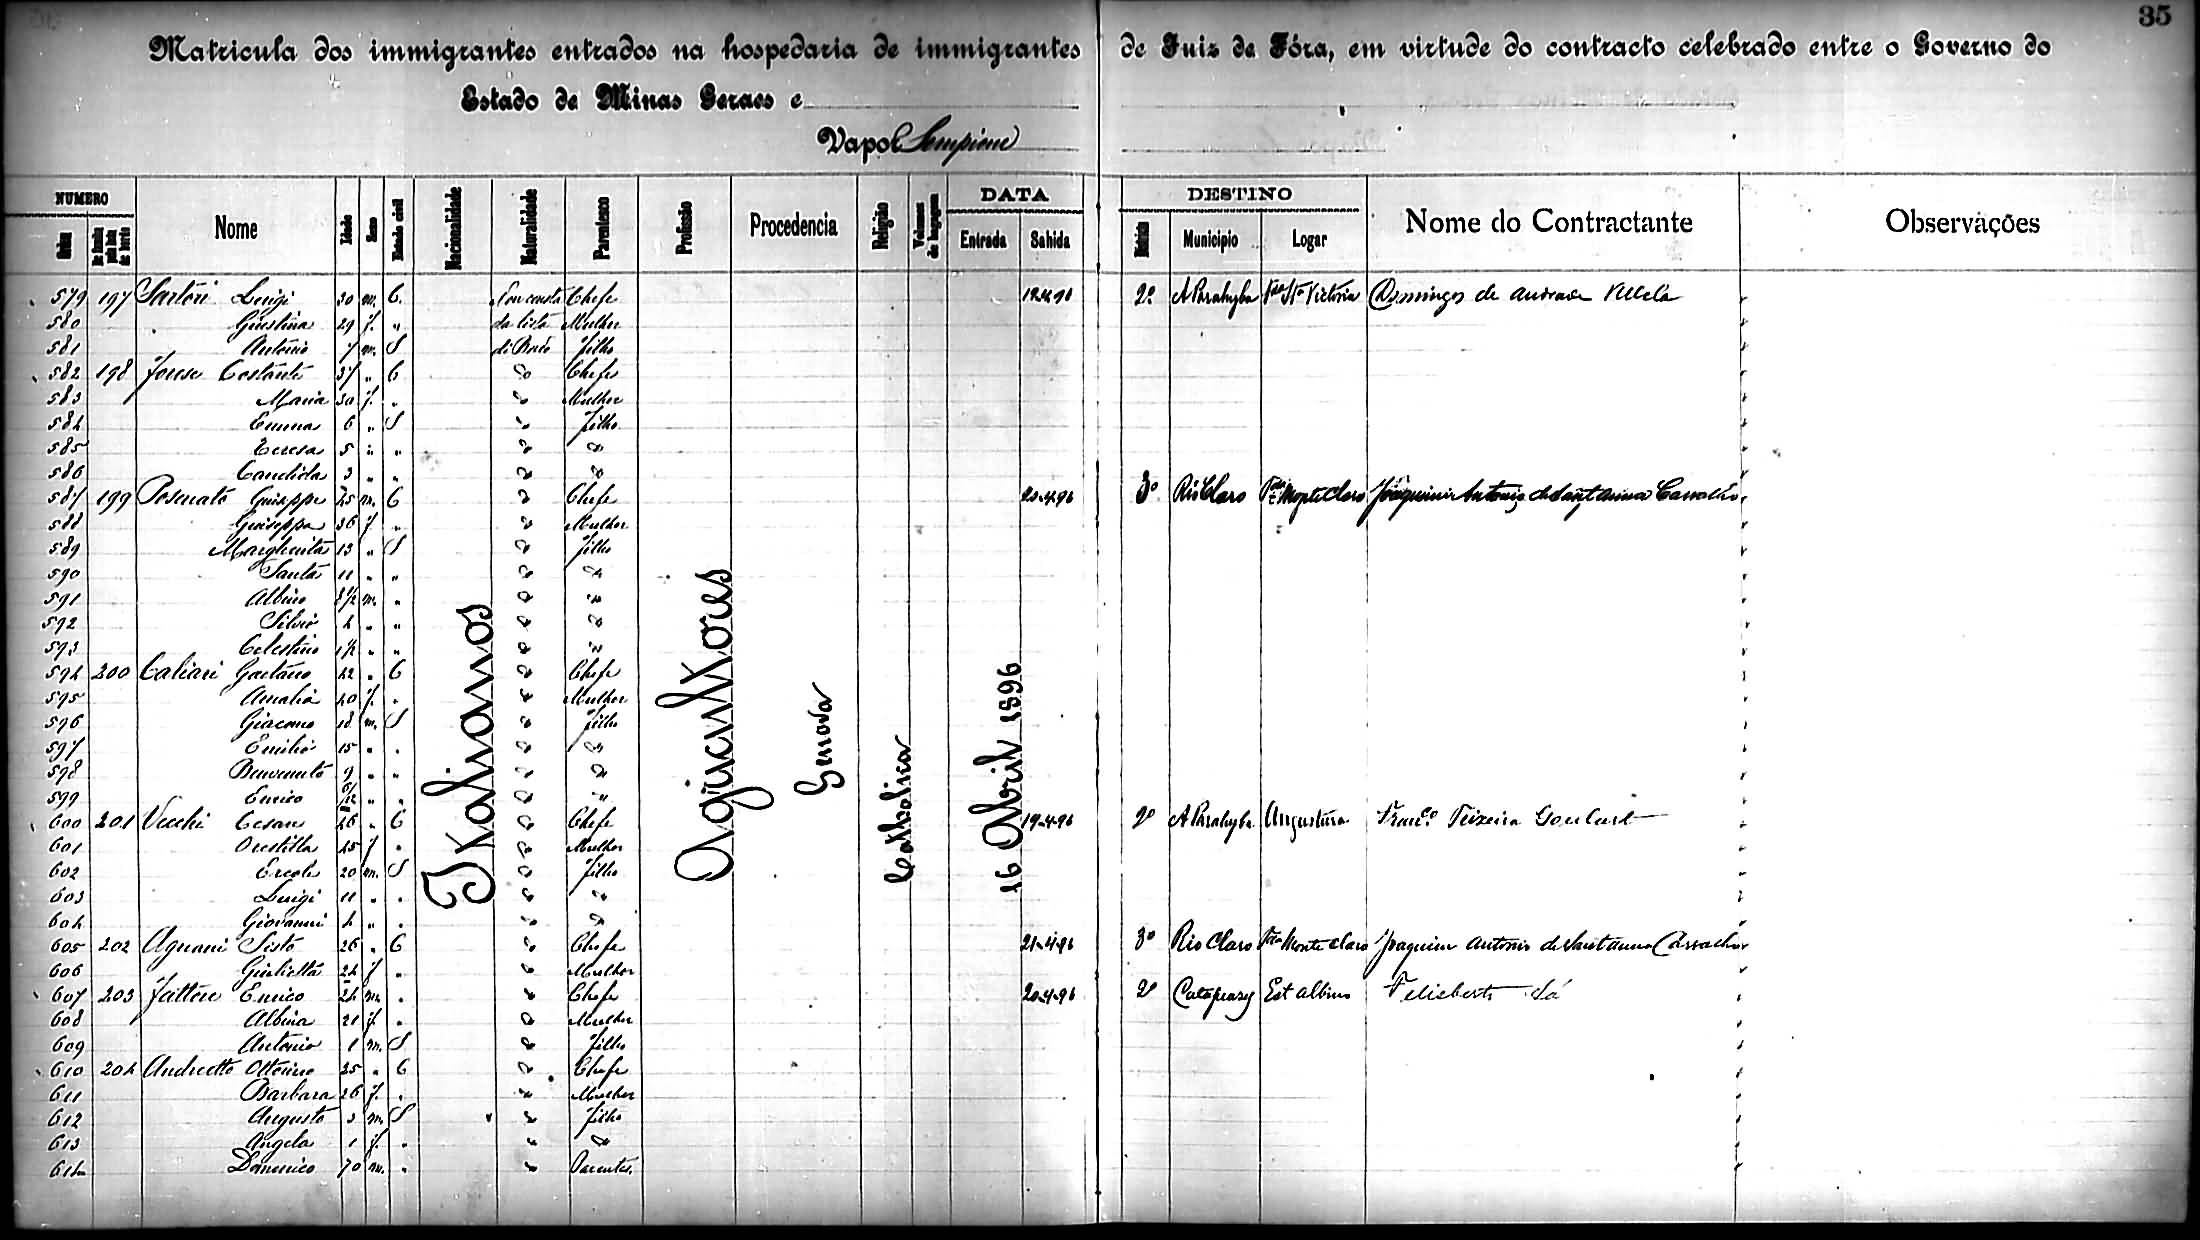 35
Matricula dos immigrantes entrados na hospedaria de immigrantes de Juiz de Fóra, em virtude do contracto celebrado entre o Governo do
Estado de Minas Geraes e
Vapor Sempione
NUMERO Nome Idade Sexo Estado civil Nacionalidade Naturalidade Parentesco Profissão Procedencia Religião Volumes de bagagem DATA DESTINO Nome do Contractante Observações
Ordem De familia Entrada Sahida Municipio Logar
579 197 Sartori Luigi 30 m. C. Chefe 19-4-96 2º A Parahyba Sta Victoria Domingos de Andrade Villela
580 Giustina 29 f. " da lista Mulher
581 Antonio 7 m. S de Bordo filho
582 198 Costante 37 " C Chefe
583 Maria 30 f. " Mulher
584 Emma 6 " S filho
585 Teresa 5 " "
586 Candida 3 " "
587 199 Posenato Guiseppe m. C Chefe 20-4-96 3º Rio Claro Monte Claro Joaquim Antonio de Sant'Anna Carvalho
588 Guiseppa 36 f. " Mulher
589 Margherita 13 " S filho
590 Santa 11 " "
591 Albino 8½ m. "
592 Silvio 4 " "
593 Celestino 1½ " "
594 200 Caliari Gaetano 42 " C Chefe
595 Amalia 40 f. " Mulher
596 Giacomo 18 m. S filho
597 Emilio 15 " "
598 Benvenuto 9 " "
599 Enrico " "
600 201 Vecchi Cesare 46 " C Chefe 19-4-96 2º A Parahyba Angustura Franc.º Teixeira Goulart
601 Orestilla 45 f " Mulher
602 Ercole 20 m. S filho
603 Luigi 11 " "
604 Giovanni 4 " "
605 202 Agnani Sisto 26 " C Chefe 21-4-96 3º Rio Claro Monte Claro Joaquim Antonio de Santanna Carvalho
606 Giulietta 24 f " Mulher
607 203 Fattore Enrico 24 m. " Chefe 20-4-96 2º Est Albino Felisberto Sá
608 Albina 21 f. " Mulher
609 Antonio 1 m. S filho
610 204 Andretto Ottorino 25 " C Chefe
611 Barbara 26 f. " Mulher
612 Augusto 3 m. S filho
613 Angela 1 f. "
614 Domenico 70 m. " Parente
Italianos
Agricultores
Genova
Catholica
16 Abril 1896